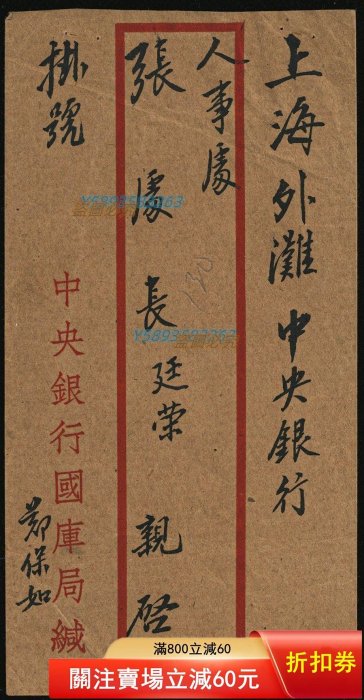 上海外灘中央銀行
人事處
張處長廷荣 親啓
130
掛號
中央銀行國庫局緘
鄭保如
滿800立減60
關注賣場立減60元
折扣券